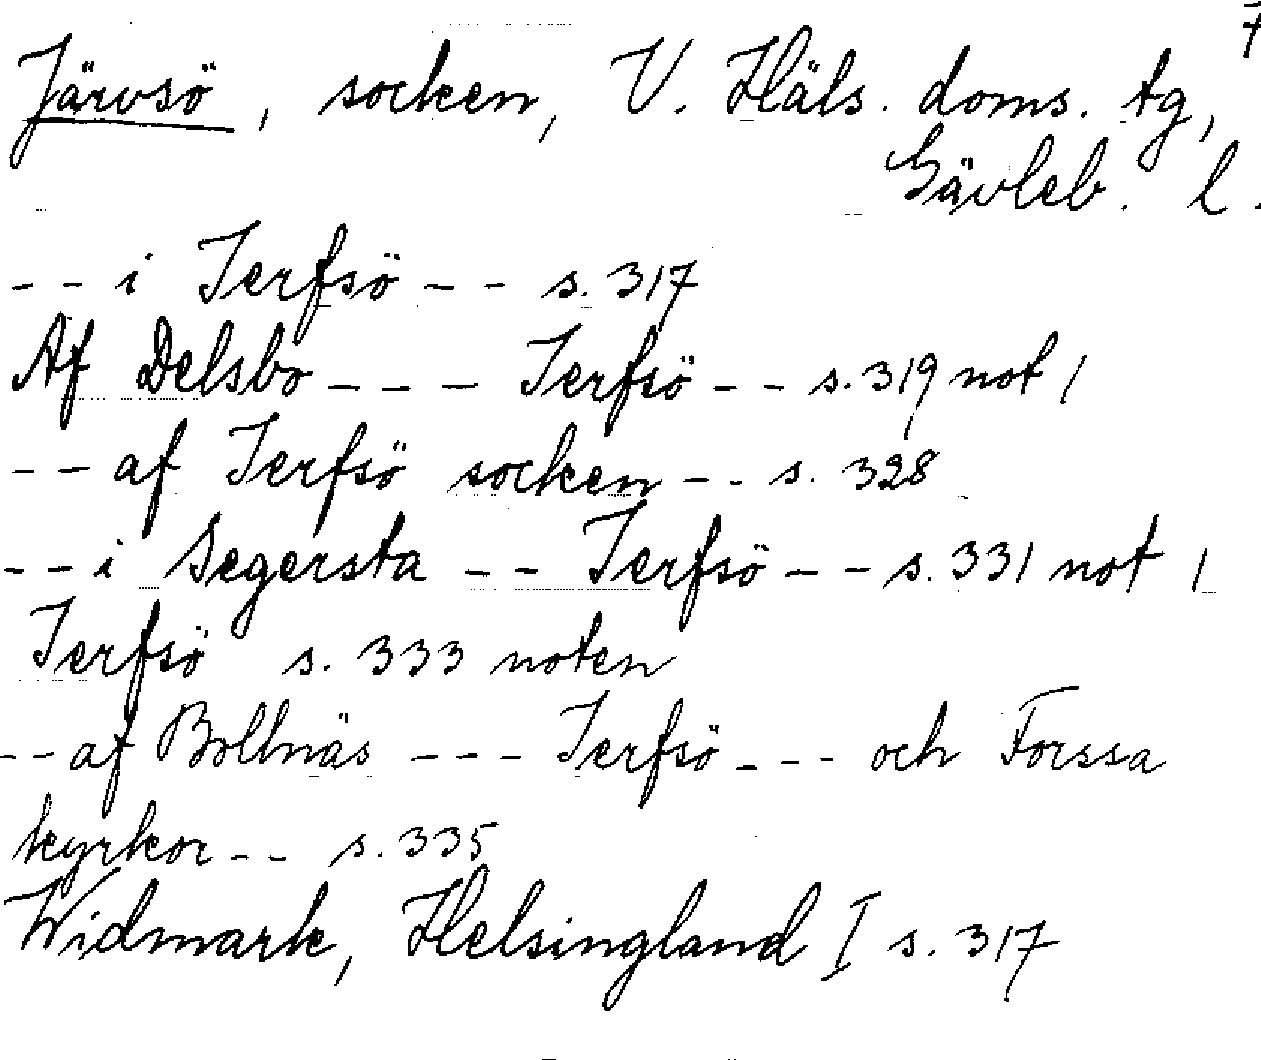 7
Järvsö, socken, V. Häls. doms. tg,
Gävleb. l.
-- i Jerfsö -- s. 317
Af Delsbo --- Jerfsö -- s. 319 not 1
-- af Jerfsö socken -- s. 328
-- i Segersta -- Jerfsö -- s. 331 not 1
Jerfsö s. 333 noten
-- af Bollnäs --- Jerfsö --- och Forssa
kyrkor -- s. 335
Widmark, Helsingland I s. 317